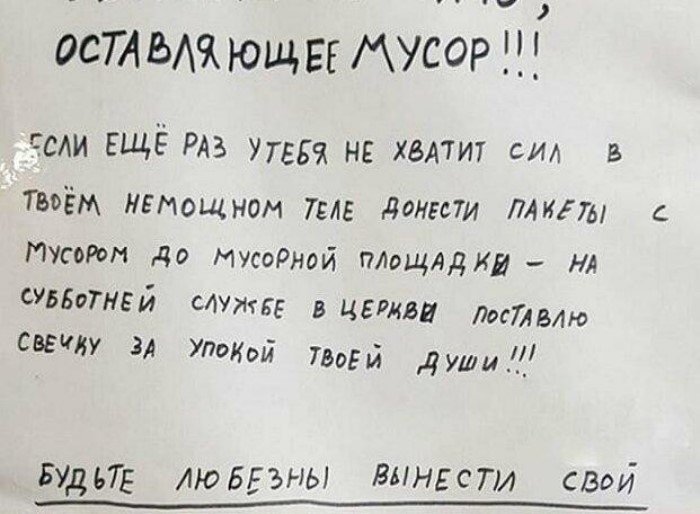 ОСТАВЛЯЮЩЕЕ МУСОР!!!
ЕСЛИ ЕЩЁ РАЗ У ТЕБЯ НЕ ХВАТИТ СИЛ В
ТВОЁМ НЕМОЩНОМ ТЕЛЕ ДОНЕСТИ ПАКЕТЫ С
МУСОРОМ ДО МУСОРНОЙ ПЛОЩАДКИ – НА
СУББОТНЕЙ СЛУЖБЕ В ЦЕРКВИ ПОСТАВЛЮ
СВЕЧКУ ЗА УПОКОЙ ТВОЕЙ ДУШИ!!!
БУДЬТЕ ЛЮБЕЗНЫ ВЫНЕСТИ СВОЙ